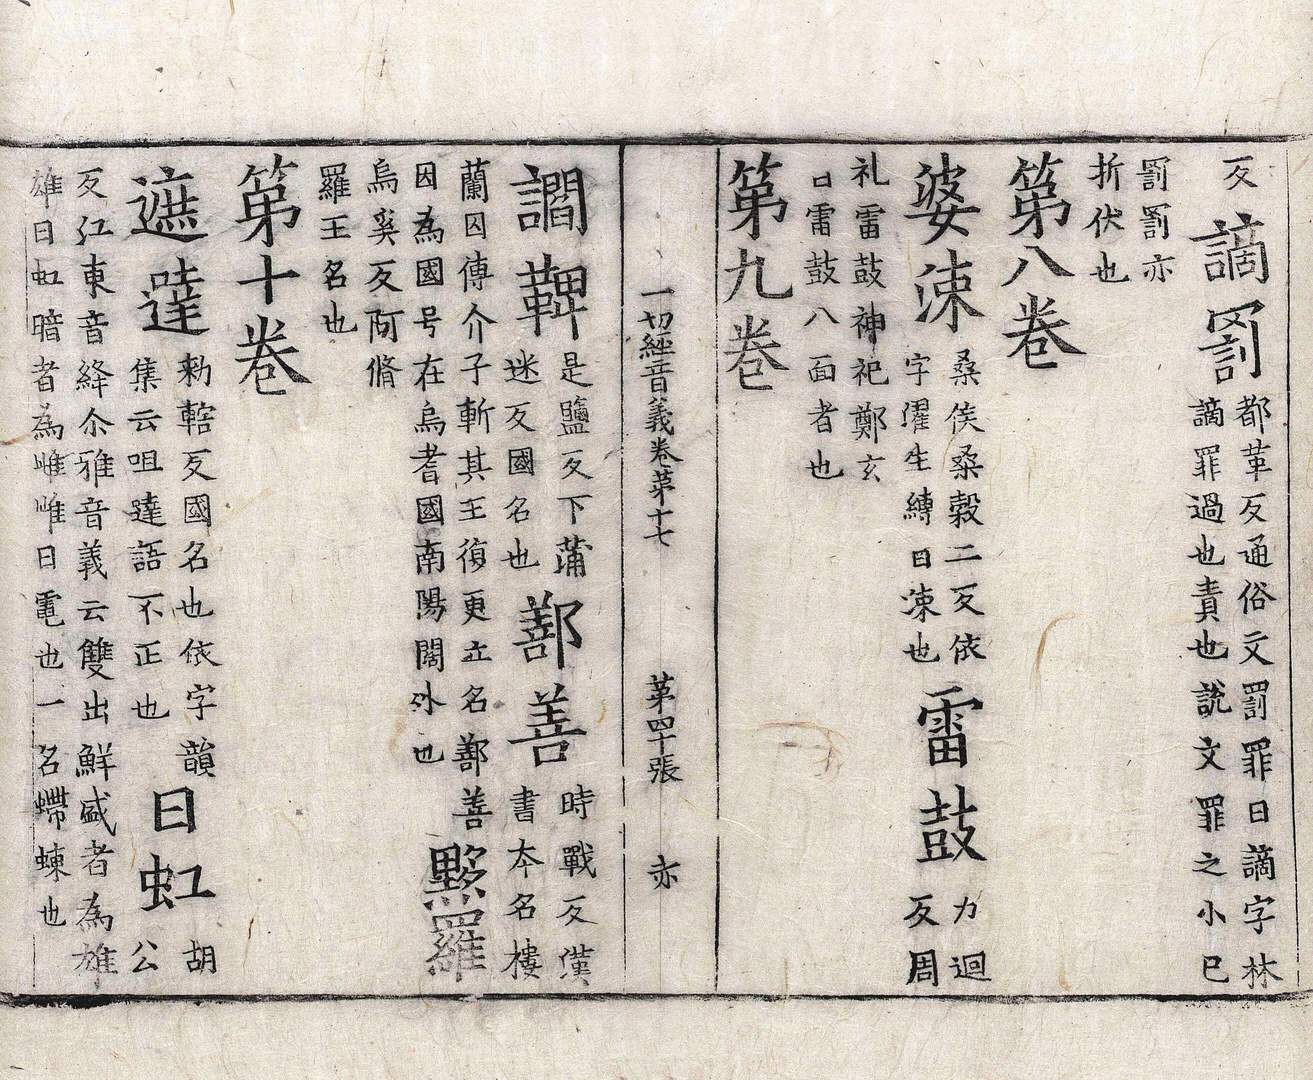 反謫罰都革反通俗文罰罪曰謫字林
謫罪過也責也說文罪之小巳
罰罰亦
折伏也
第八卷
婆涑桑侯桑穀二反依
字濯生縛曰涑也
雷鼓力迴
反周
礼雷鼓神祀鄭玄
曰雷鼓八面者也
第九卷
一切經音義卷苐十七 苐四十張 亦
讇鞞是鹽反下蒲
迷反國名也
鄯善時戰反漢
書本名樓
蘭囙傳介子斬其王復更立名鄯善
因為國号在烏耆國南陽關外也
黟羅
烏奚反阿脩
羅王名也
第十卷
遮噠勑轄反國名也依字韻
集云咀噠語不正也
日虹胡
公
反江東音絳尒雅音義云雙出鮮盛者為雄
雄曰虹暗者為雌雌曰電也一名螮蝀也